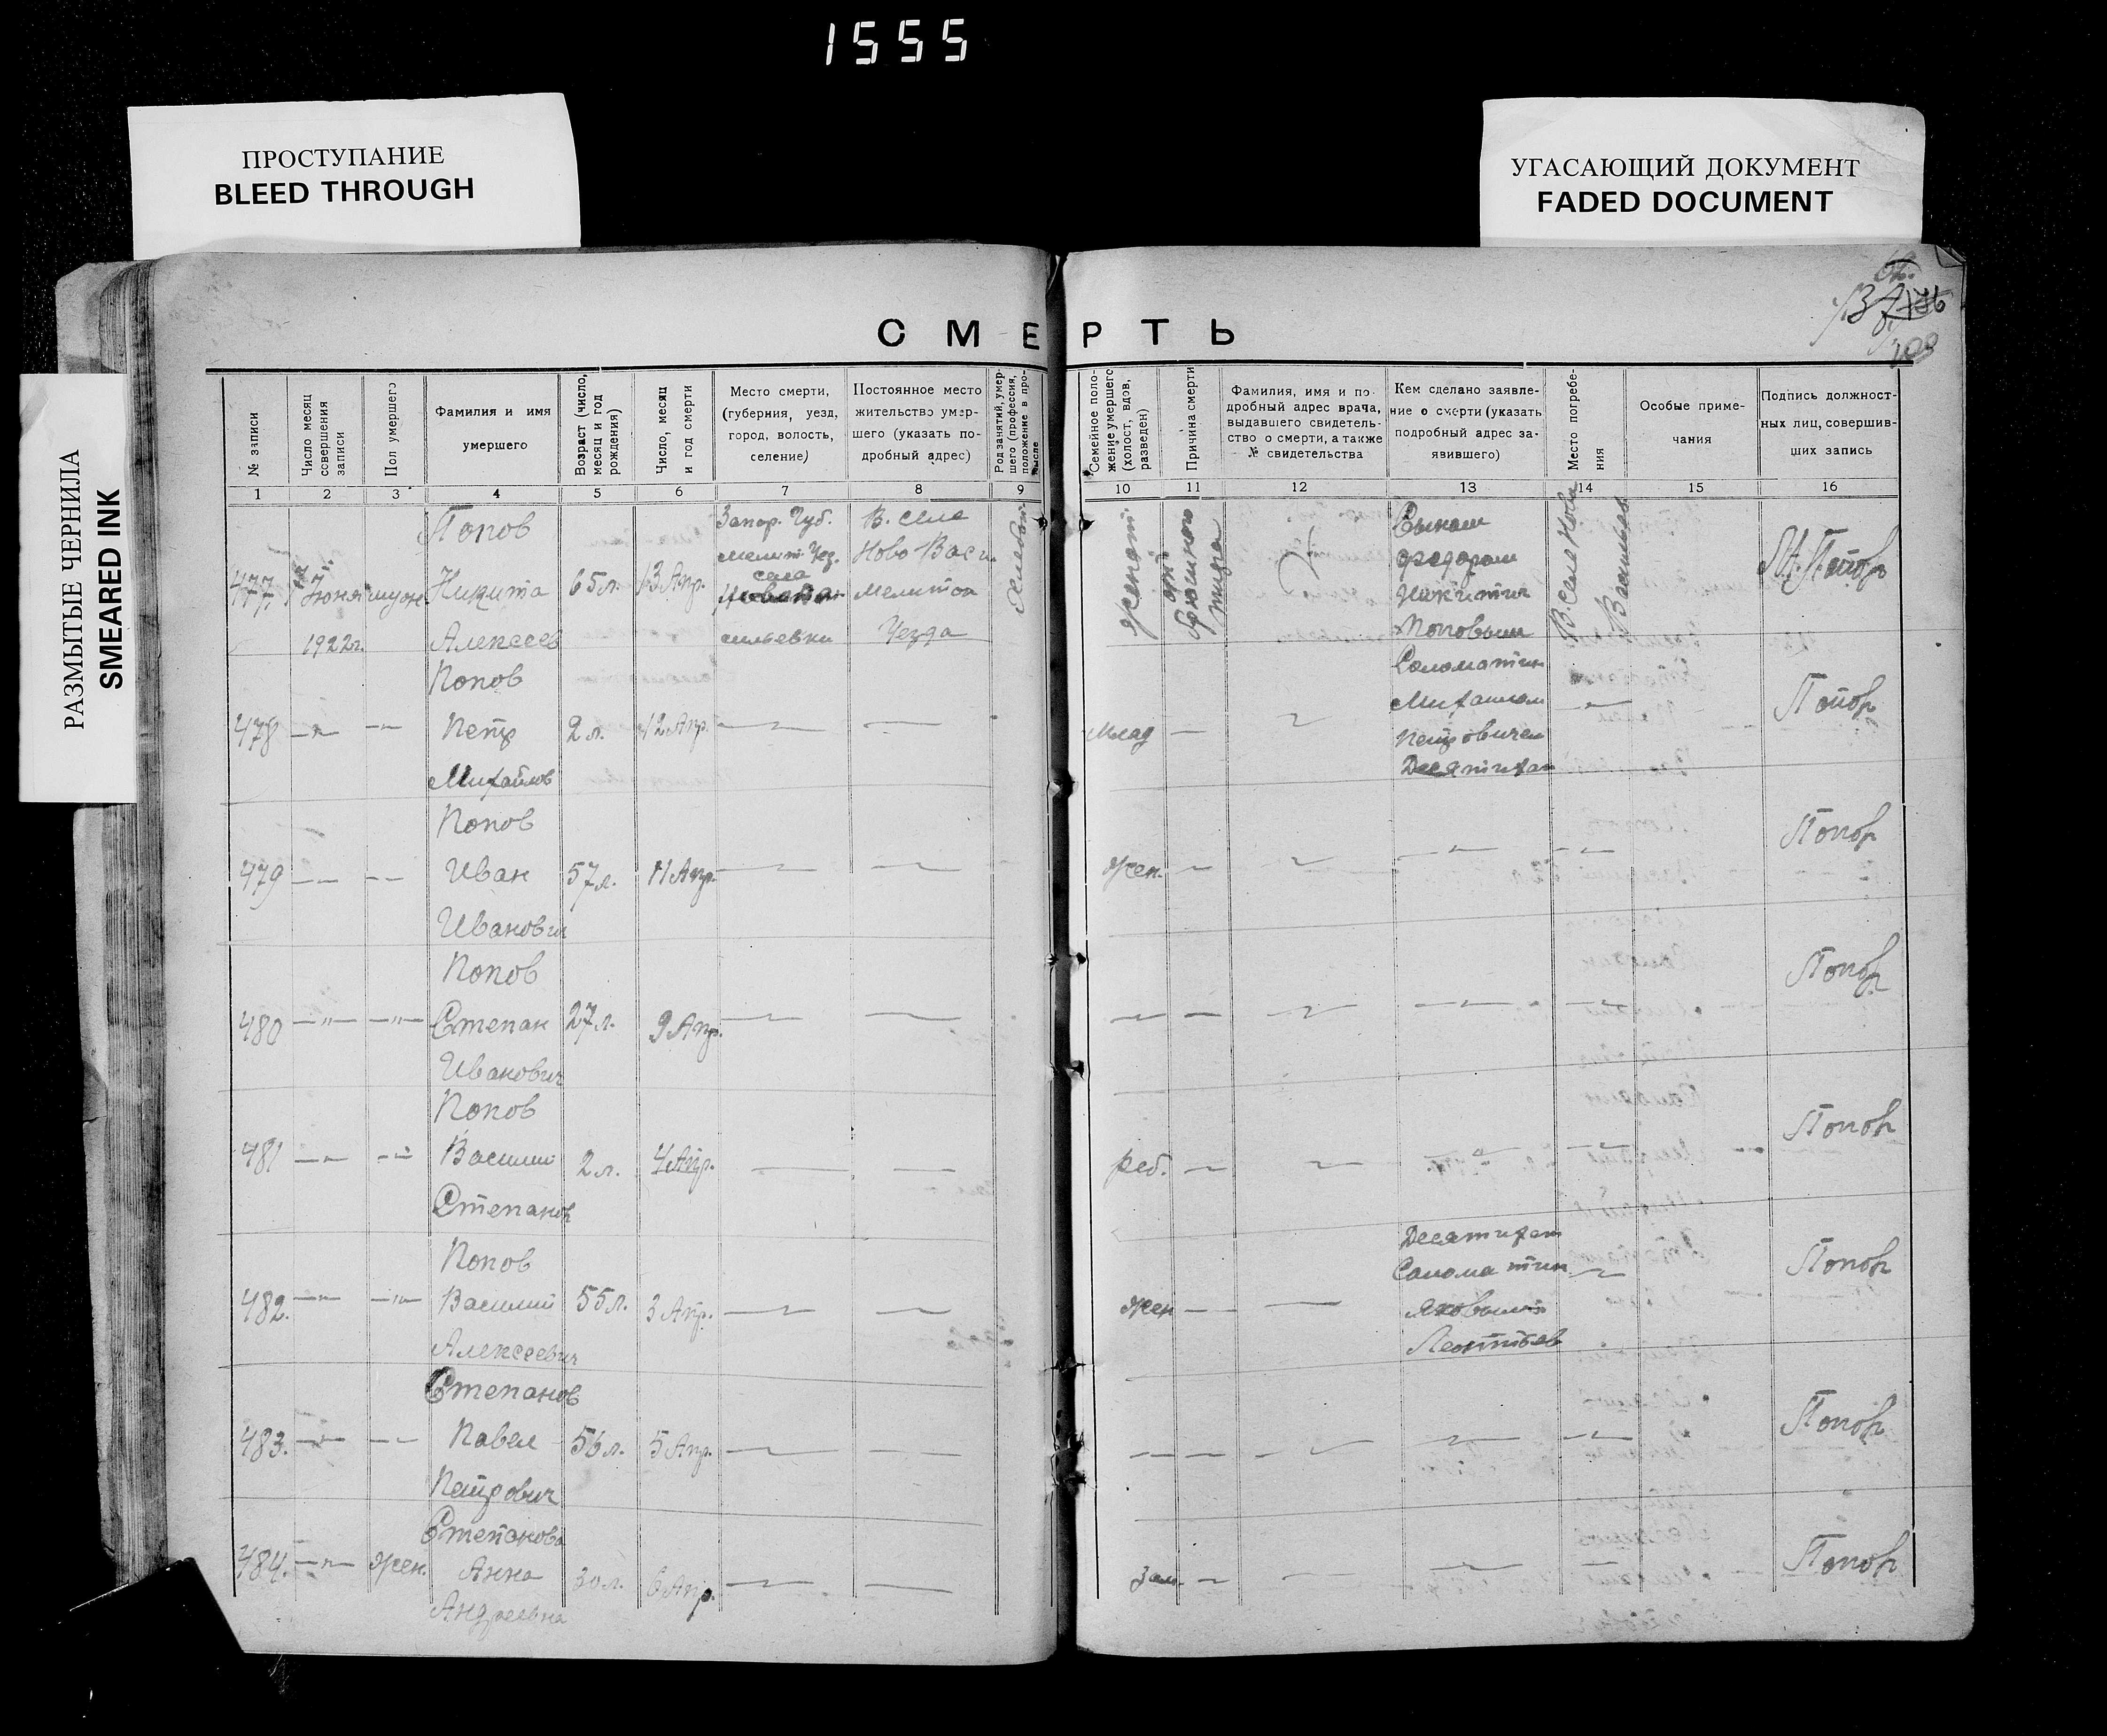 1555
ПРОСТУПАНИЕ
BLEED THROUGH
УГАСАЮЩИЙ ДОКУМЕНТ
FADED DOCUMENT
РАЗМЫТЫЕ ЧЕРНИЛА
SMEARED INK
109
СМЕРТЬ
№ записи
Число месяц
совершения
записи
Пол умершего
Фамилия и имя
умершего
Возраст (число,
месяц и год
рождения)
Число, месяц
и год смерти
Место смерти,
(губерния, уезд,
город, волость,
селение)
Постоянное место
жительство умер-
шего (указать по-
дробный адрес)
Род занятий, умер-
шего (профессия,
положение в про-
мысле
Семейное поло-
жение умершего
(холост, вдов,
разведен)
Причина смерти
Фамилия, имя и по-
дробный адрес врача,
выдавшего свидетель-
ство о смерти, а также
№ свидетельства
Кем сделано заявле-
ние о смерти (указать
подробный адрес за-
явившего)
Место погребе-
ния
Особые приме-
чания
Подпись должност-
ных лиц, совершив-
ших запись
1 2 3 4 5 6 7 8 9 10 11 12 13 14 15 16
477.
Июня
1922г.
муж.
Попов
Никита
Алексеев
65л.
13 Апр.
Запор. Губ.
Мелит. Уез.
села
Нова Ва
сильевки
В. селе
Ново Васи.
Мелитоп
Уезда
Хлебоп.
женат
от
брюшного
тифа
Сыном
Федором
Никитич
Поповым
В. Селе Ново
Васильев.
Попов
478 —"— —"—
Попов
Петр
Михайлов
2 л.
12 Апр.
Млад
Саломатин
Михаилом
Петровичем
Десятихат
Попов
479 — —
Попов
Иван
Иванович
57л.
11 Апр.
Жен.
Попов
480 —"— —"—
Попов
Степан
Иванович
27л.
9 Апр.
Попов
481 —"— —"—
Попов
Василий
Степанов
2 л.
4 Апр.
реб.
Попов
482. —"— —"—
Попов
Василий
Алексеевич
55л.
3 Апр.
жен
Десятихат
Саломатин
Яковым
Леонтьев
Попов
483. —"— —"—
Степанов
Павел
Петрович
56л.
5 Апр.
Попов
484. —"— Жен.
Степанова
Анна
Андреевна
30л.
6 Апр.
Зам.
Попов